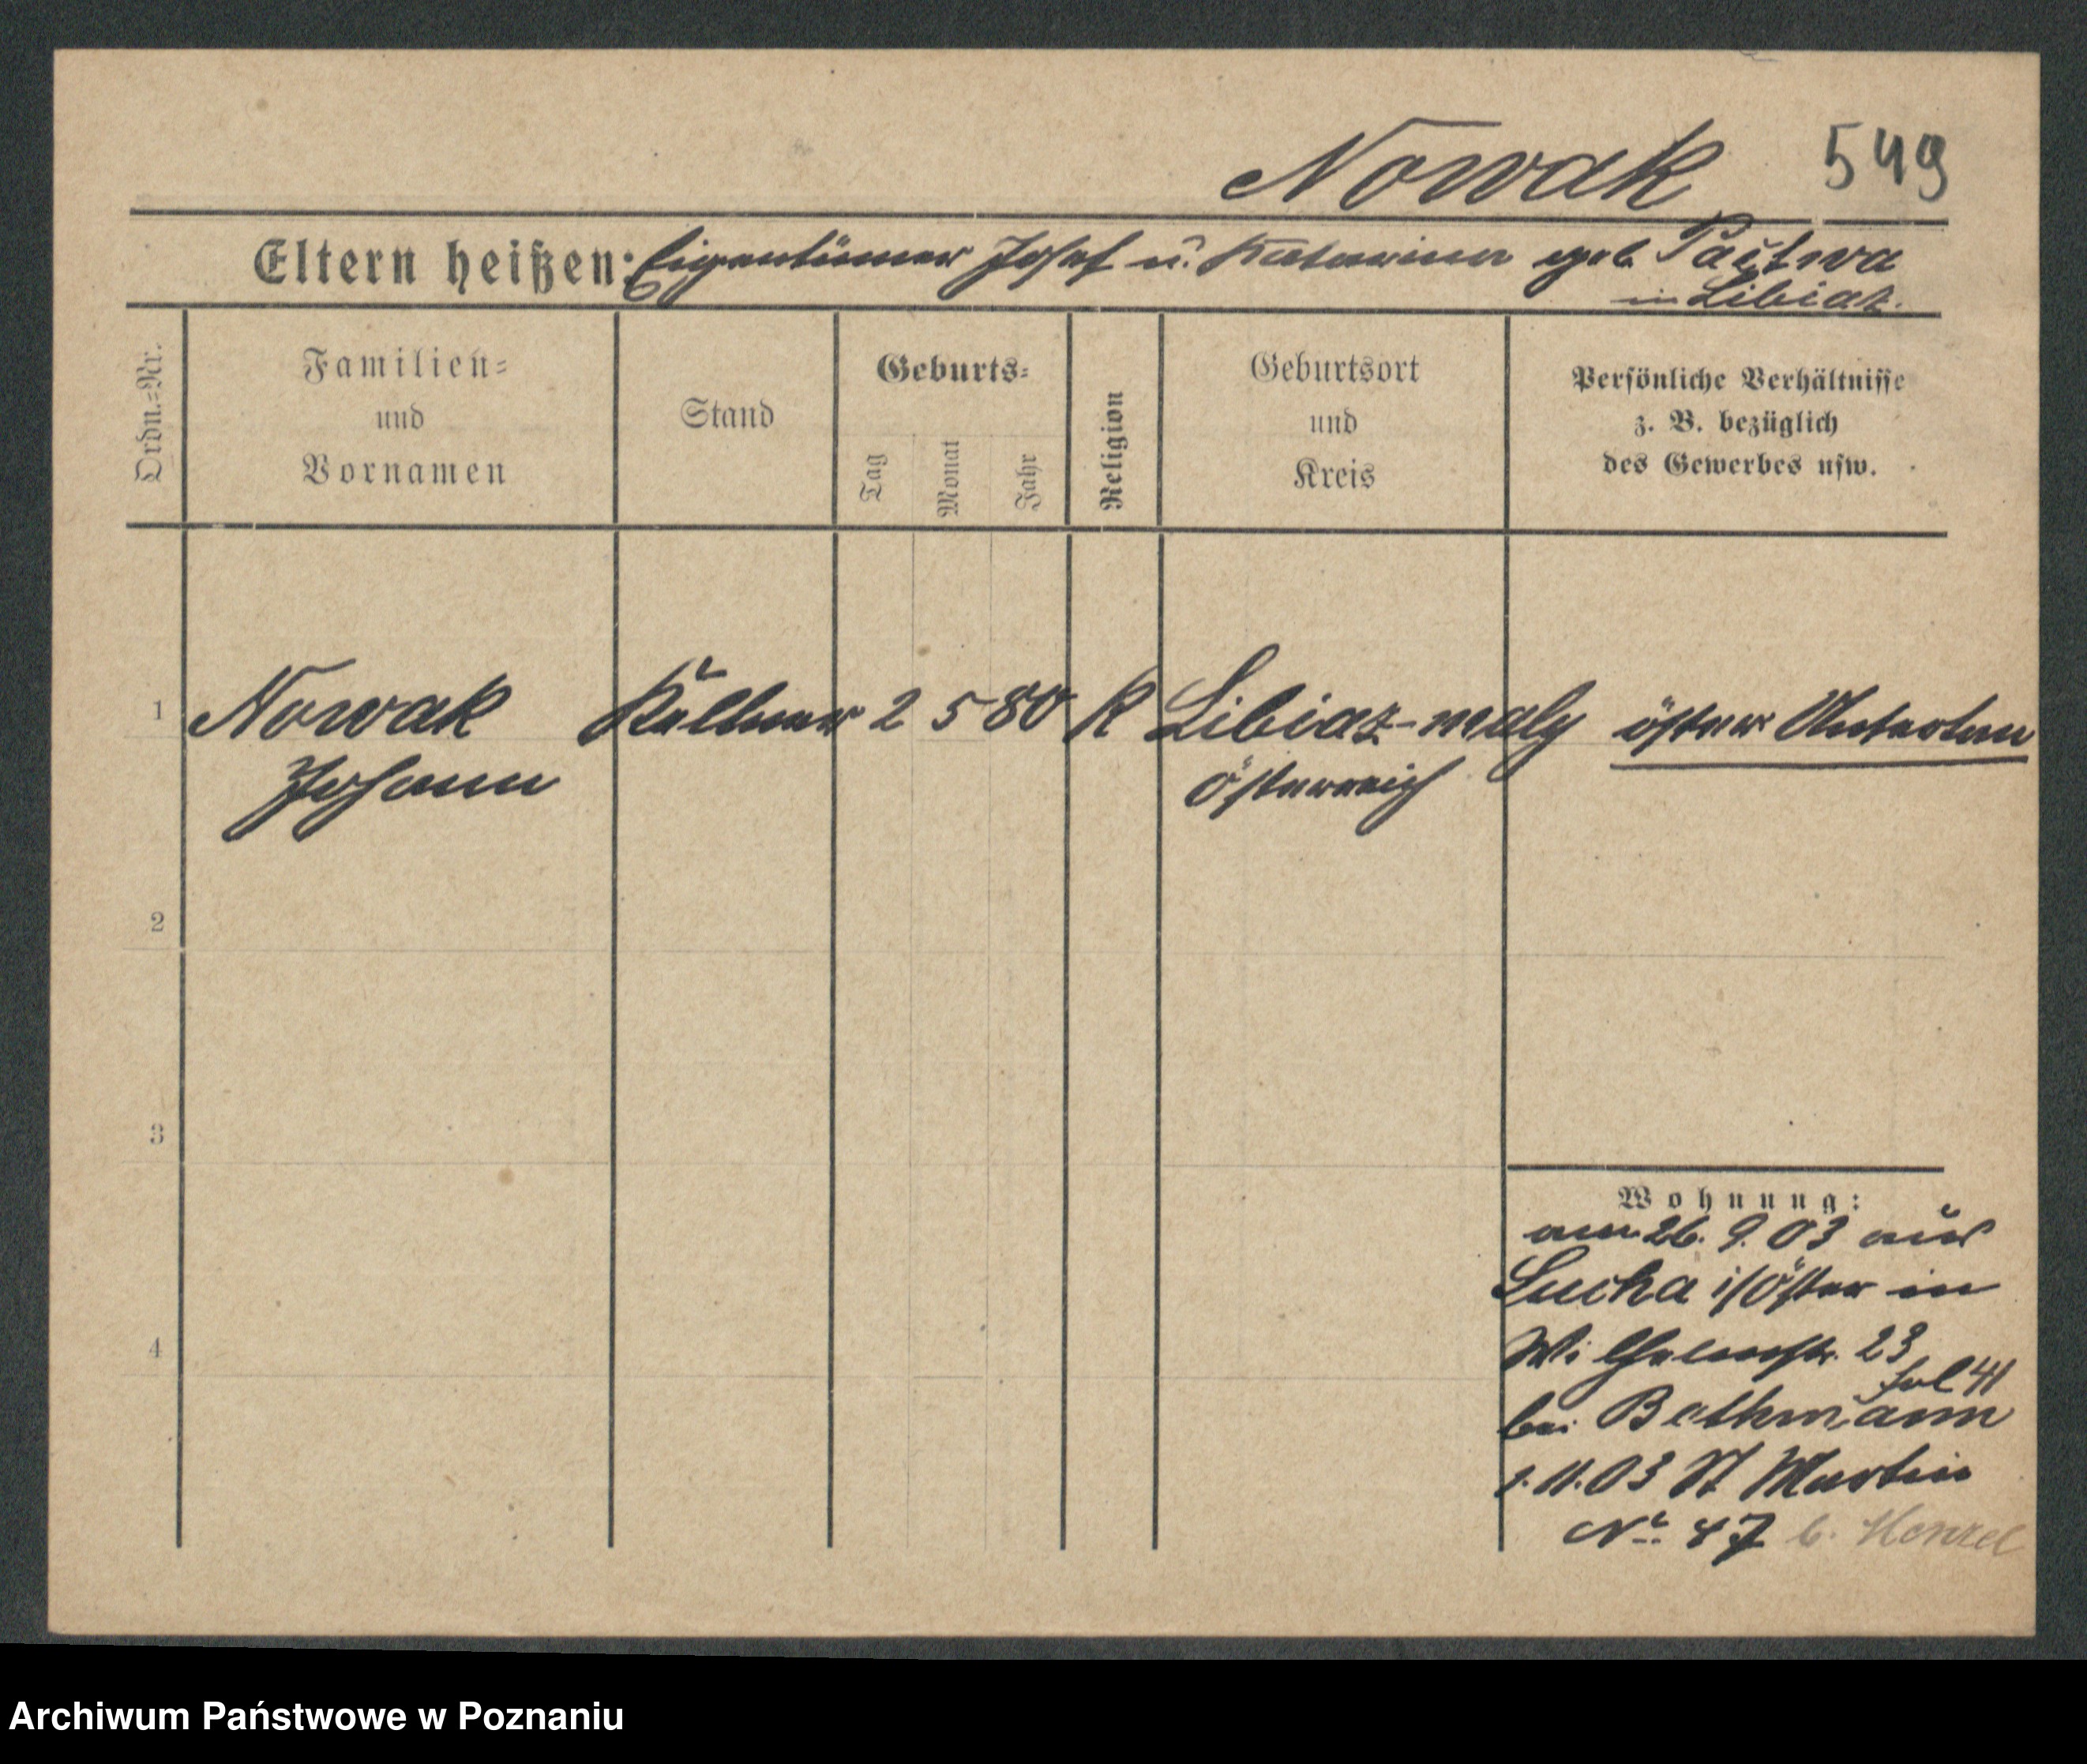 Nowak 549
Eltern heißen: Eigentümer Josef u. Katarina geb. Pastwa
in Libiaz.
Ordn.-Nr.
Familien-
und
Vornamen
Stand
Geburts-
Tag
Monat
Jahr
Religion
Geburtsort
und
Kreis
Persönliche Verhältnisse
z. B. bezüglich
des Gewerbes usw.
1 Nowak Kellner 2 5 80 K Libiaz-maly österr Untertan
Johann Österreich
2
3
4
Wohnung:
am 26. 9. 03 aus
Sucha i/Öster in
Wilhelmstr. 23
bei Bethmann
1. 11. 03 St Martin
No. 47 b. Henzel
Archiwum Państwowe w Poznaniu